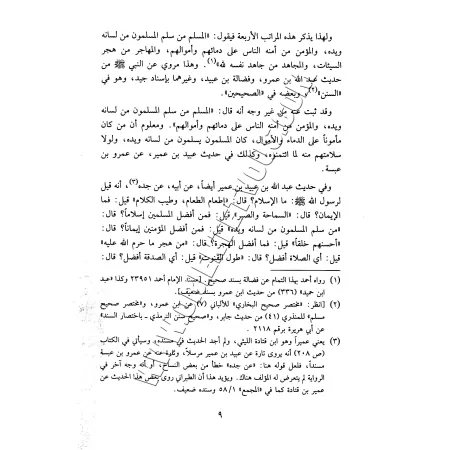 ولهذا يذكر هذه المراتب الأربعة فيقول: «المسلم من سلم المسلمون من لسانه
ويده، والمؤمن من أمنه الناس على دمائهم وأموالهم، والمهاجر من هجر
السيئات، والمجاهد من جاهد نفسه لله»(١). وهذا مروي عن النبي ﷺ من
حديث عبد الله بن عمرو، وفضالة بن عبيد، وغيرهما بإسناد جيد، وهو في
«السنن»(٢)، وبعضه في «الصحيحين».
وقد ثبت عنه من غير وجه أنه قال: «المسلم من سلم المسلمون من لسانه
ويده، والمؤمن من أمنه الناس على دمائهم وأموالهم». ومعلوم أن من كان
مأموناً على الدماء والأموال، كان المسلمون يسلمون من لسانه ويده، ولولا
سلامتهم منه لما ائتمنوه، وكذلك في حديث عبيد بن عمير، عن عمرو بن
عبسة.
وفي حديث عبد الله بن عبيد بن عمير أيضاً، عن أبيه، عن جده(٣)، أنه قيل
لرسول الله ﷺ: ما الإسلام؟ قال: «إطعام الطعام، وطيب الكلام» قيل: فما
الإيمان؟ قال: «السماحة والصبر» قيل: فمن أفضل المسلمين إسلاماً؟ قال:
«من سلم المسلمون من لسانه ويده» قيل: فمن أفضل المؤمنين إيماناً؟ قال:
«أحسنهم خلقاً» قيل: فما أفضل الهجرة؟ قال: «من هجر ما حرم الله عليه»
قيل: أي الصلاة أفضل؟ قال: «طول القنوت» قيل: أي الصدقة أفضل؟ قال:
(١) رواه أحمد بهذا التمام عن فضالة بسند صحيح. [مسند الإمام أحمد ٢٣٩٥١ وكذا «عبد
ابن حميد» (٣٣٦) من حديث ابن عمرو بسند ضعيف].
(٢) [انظر: «مختصر صحيح البخاري» للألباني (٧) عن ابن عمرو، و«مختصر صحيح
مسلم» للمنذري (٤١) من حديث جابر، و«صحيح سنن الترمذي ـ باختصار السند»
عن أبي هريرة برقم ٢١١٨.
(٣) يعني عميراً وهو ابن قتادة الليثي، ولم أجد الحديث في مسنده، وسيأتي في الكتاب
(ص ٢٠٨) أنه يروى تارة عن عبيد بن عمير مرسلاً، وتارة عنه عن عمرو بن عبسة
مسنداً، فلعل قوله هنا: «عن جده» خطأ من بعض النساخ، أو أنه وجه آخر في
الرواية لم يتعرض له المؤلف هناك. ويؤيد هذا أن الطبراني روى بعض هذا الحديث عن
عمير بن قتادة كما في «المجمع» ٥٨/١ وسنده ضعيف.
٩